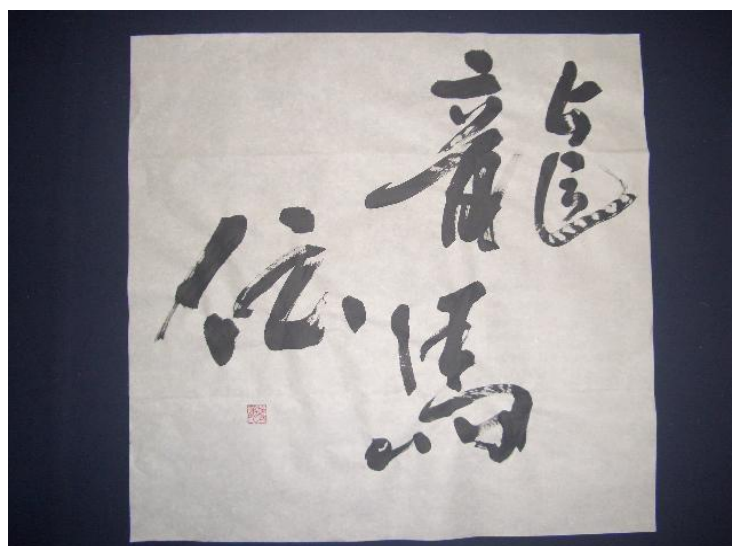 龍馬
伝